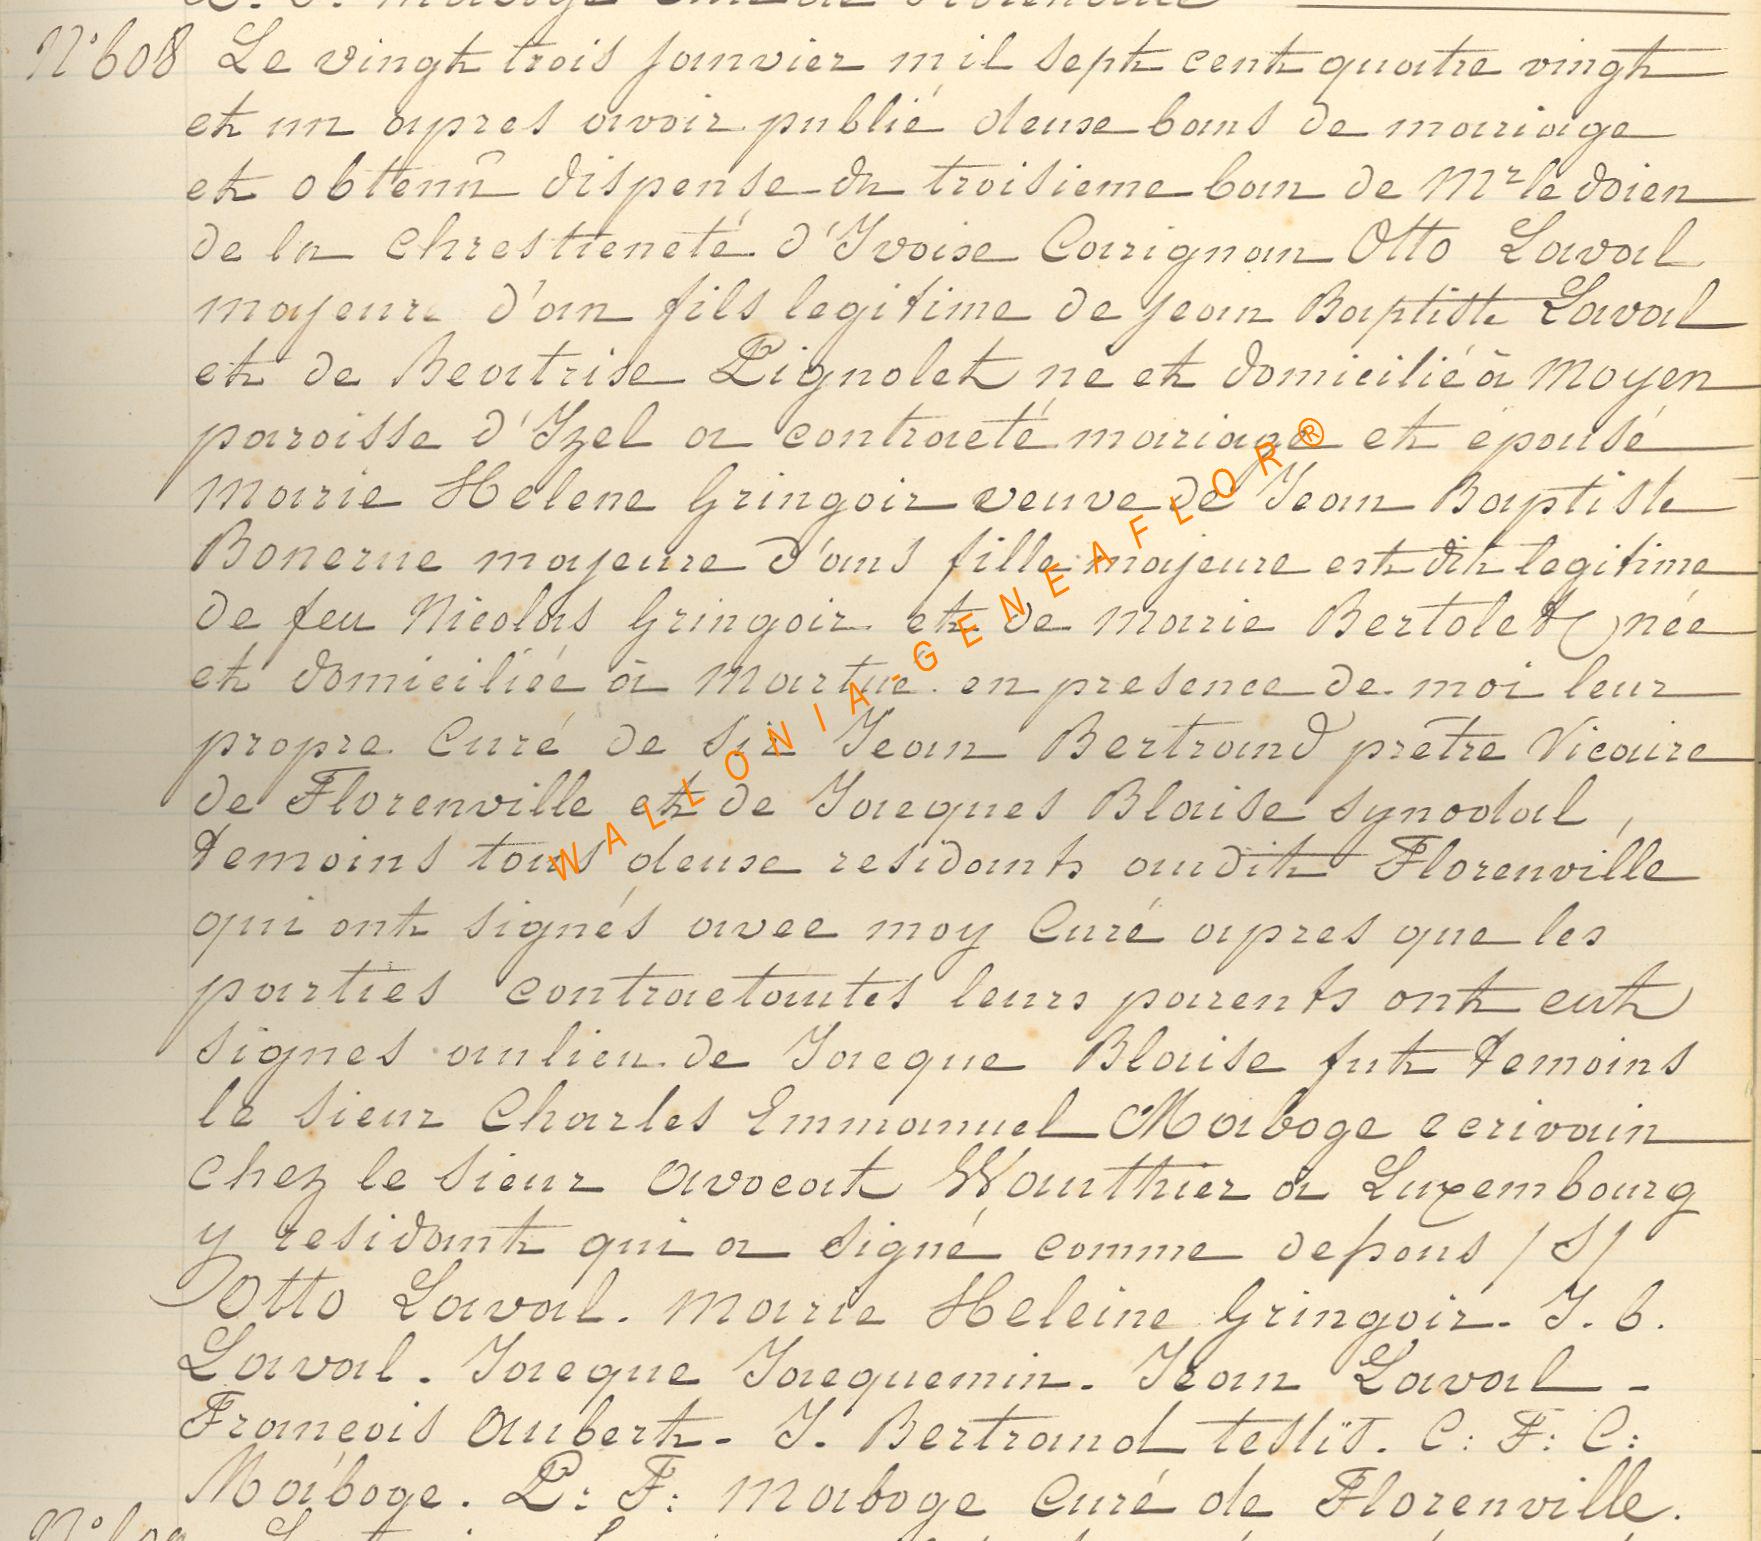 N° 608 Le vingt trois janvier mil sept cent quatre vingt
et un apres avoir publié deuxe bans de mariage
et obtenû dispense du troisieme ban de Mr le doien
de la Chrestieneté d'Ivoise Carignan Otto Laval
majeure d'an fils legitime de jean Baptiste Laval
et de Beatrise Pignolet né et domicilié à Moyen
paroisse d'Izel a contracté mariage et épousé
Marie Helene Gringoir veuve de Jean Baptiste
Bonerue majeure d'ans fille majeure est dit legitime
de feu Nicolas Gringoir et de Marie Bertolet née
et domiciliée à Martué en presence de moi leur
propre Curé de Sir Jean Bertrand prêtre Vicaire
de Florenville et de Jacques Blaise synodal,
temoins tous deuxe residants audit Florenville
qui ont signés avec moy Curé apres que les
parties contractantes leurs parents ont eut
signes au lieu de Jacque Blaise fut temoins
le sieur Charles Emmanuel Maboge ecrivain
chez le sieur Avocat Wauthier a Luxembourg
y residant qui a signé comme depous /S/
Otto Laval. Marie Heleine Gringoir. J. b.
Laval. Jacque Jacquemin. Jean Laval -
Francois Aubert - J. Bertrand testis. C: F: C:
Maboge. P: F: Maboge Curé de Florenville.
WALLONIA-GENEAFLOR®